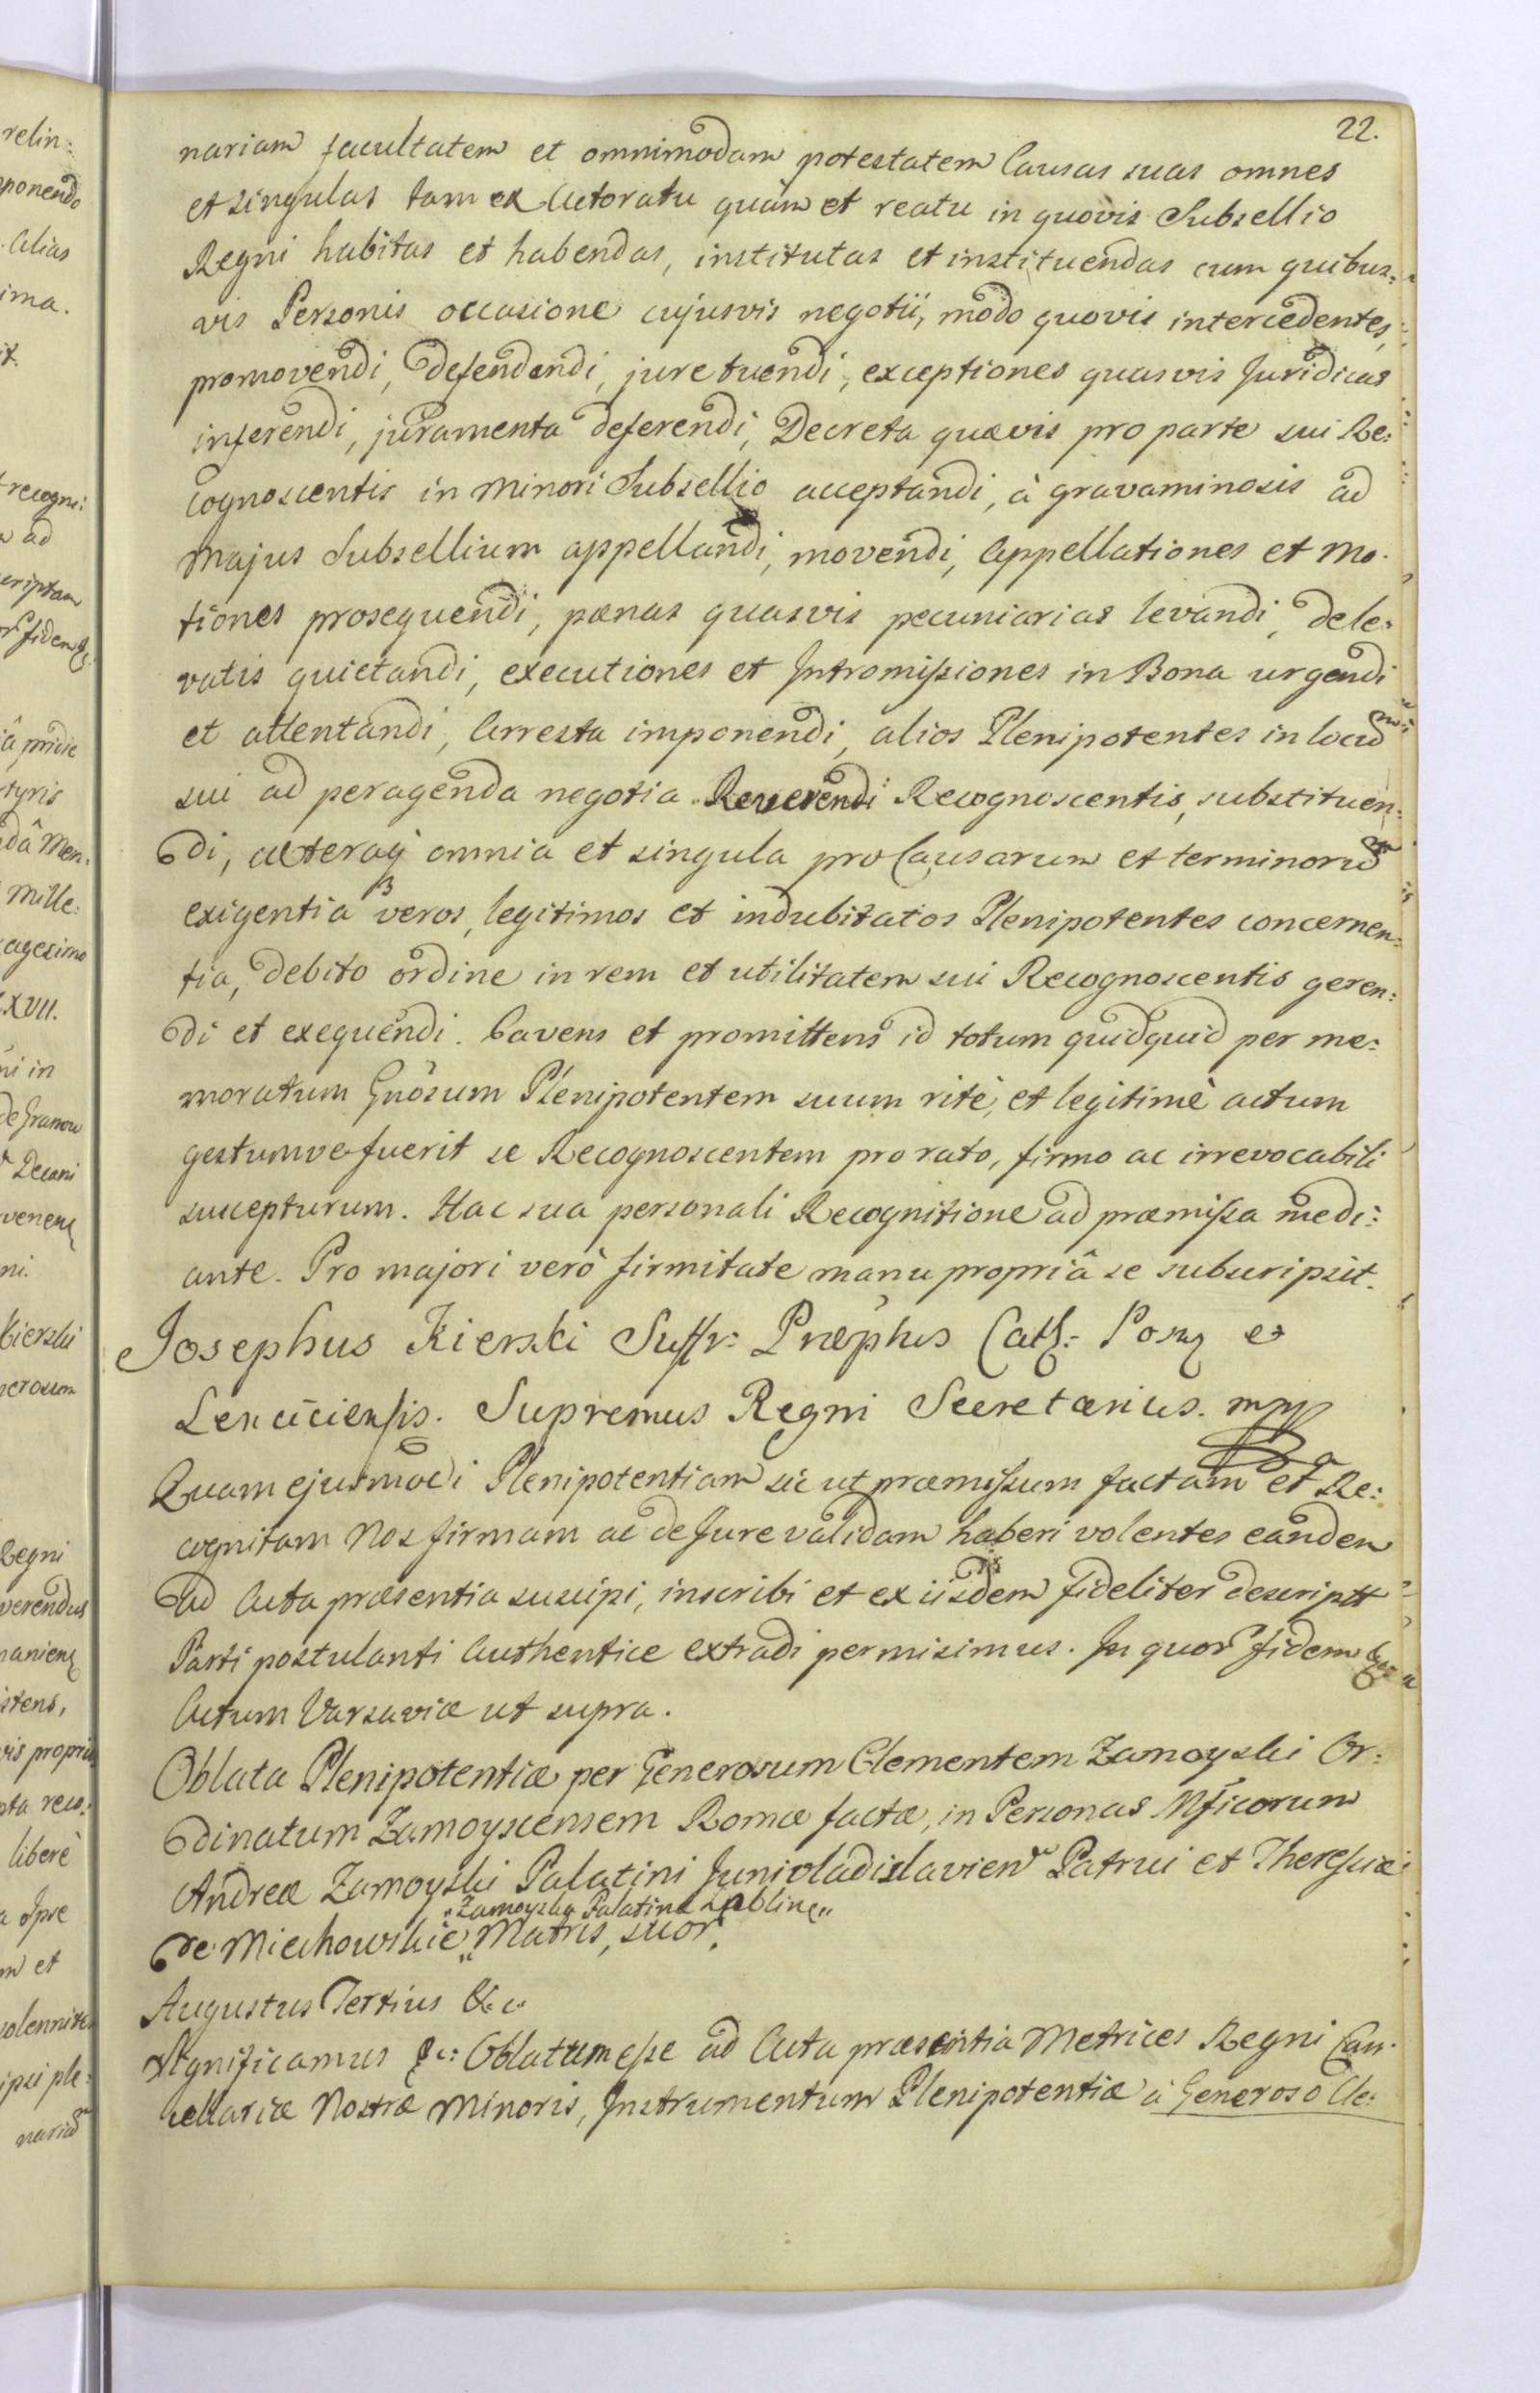 22.
nariam facultatem et omnimodam potestatem Causas suas omnes
et singulas tam ex Actoratu quàm et reatu in quovis Subsellio
Regni habitas et habendas, institutas et instituendas cum quibus:
vis Personis occasione cujusvis negotii, modo quovis intercedentes,
promovendi, defendendi, jure tuendi, exceptiones quasvis Juridicas
inferendi, juramenta deferendi, Decreta quævis pro parte sui Re:
cognoscentis in minori Subsellio acceptandi, à gravaminosis ad
majus Subsellium appellandi, movendi, Appellationes et mo:
tiones prosequendi, pænas quasvis pecuniarias levandi, de le:
vatis quietandi, executiones et Intromissiones in Bona urgendi
et attentandi, Arresta imponendi, alios Plenipotentes in locu
sui ad peragenda negotia Reverendi Recognoscentis, substituen:
di, cæteraq omnia et singula pro Causarum et terminoru
exigentia veros, legitimos et indubitatos Plenipotentes concernen:
tia, debito ordine in rem et utilitatem sui Recognoscentis geren:
di et exequendi. Cavens et promittens id totum quidquid per me:
moratum Gnosum Plenipotentem suum ritè, et legitimè actum
gestumve fuerit se Recognoscentem pro rato, firmo ac irrevocabili
suscepturum. Hac sua personali Recognitione ad præmissa medi:
ante. Pro majori verò firmitate manu propriâ se subscripsit.
Josephus Kierski Suffr: Præptus Cath: Posn et
Lenciciensis. Supremus Regni Secretarius. mpp
Quam ejusmodi Plenipotentiam sic ut præmissum factam et Re:
cognitam Nos firmam ac de Jure validam haberi volentes eandem
ad Acta præsentia suscipi, inscribi et ex iisdem fideliter descriptt
Parti postulanti Authentice extradi permisimus. In quor fidem &
Actum Varsaviæ ut supra.
Oblata Plenipotentiæ per Generosum Clementem Zamoyski Or:
dinatum Zamoyscensem Romæ factæ, in Personas Mficorum
Andreæ Zamoyski Palatini Junivladislavien Patrui et Theresiæ
"Zamoyska Palatinæ Lubline"
de Miechowskie " Matris, suor.
Augustus Tertius &c.
Significamus &c: Oblatum esse ad Acta præsentia Metrices Regni Can:
cellariæ Nostræ Minoris, Instrumentum Plenipotentiæ à Generoso Cle: